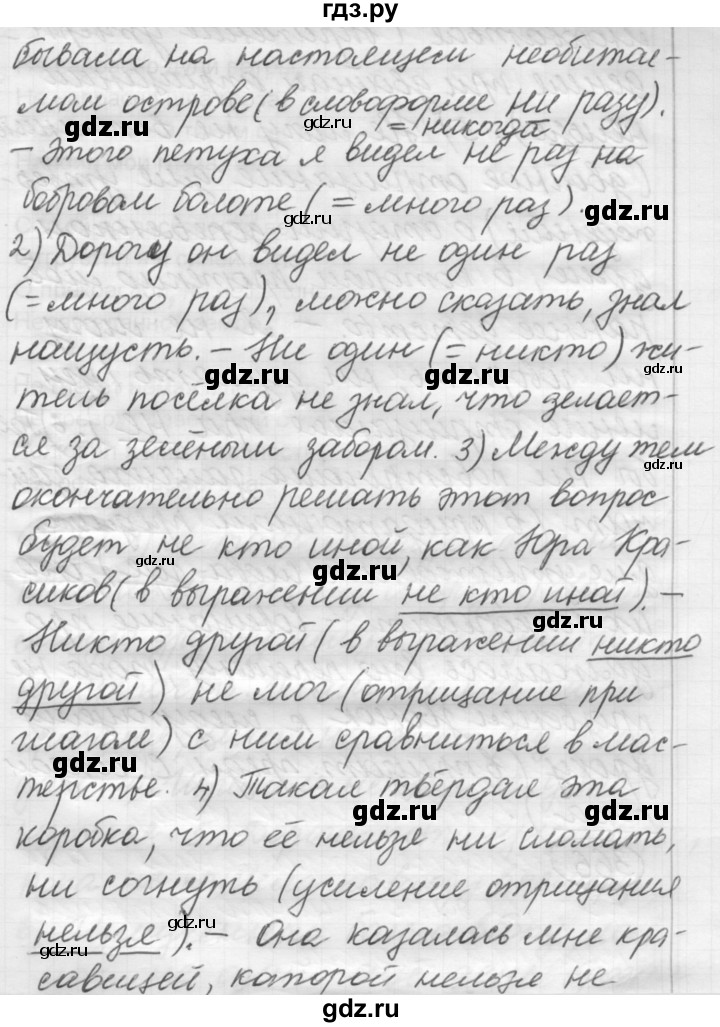 гдз.ру
бывала на настоящем необитае-
мом острове (в словоформе ни разу).
gdz.ru
gdz.ru
= никогда
gdz.ru
– Этого петуха я видел не раз на
бобровам болоте (= много раз).
gdz.ru
gdz.ru
2) Дорогу он видел не один раз
(= много раз), можно сказать, знал
наизусть. – Ни один (= никто) жи-
gdz.ru
gdz.ru
gdz.ru
тель посёлка не знал, что делает-
ся за зелёным забором. 3) Между тем
gdz.ru
окончательно решать этот вопрос
будет не кто иной, как Юра Кра-
gdz.ru
gdz.ru
сиков (в выражении не кто иной). –
gdz.ru
Никто другой (в выражении никто
другой) не мог (отрицание при
глаголе) с ним сравниться в мас-
gdz.ru
терстве. 4) Такая твёрдая эта
gdz.ru
gdz.ru
коробка, что её нельзя ни сломать,
ни согнуть (усиление отрицания
gdz.ru
нельзя). – Она казалась мне кра-
gdz.ru
савицей, которой нельзя не
gdz.ru